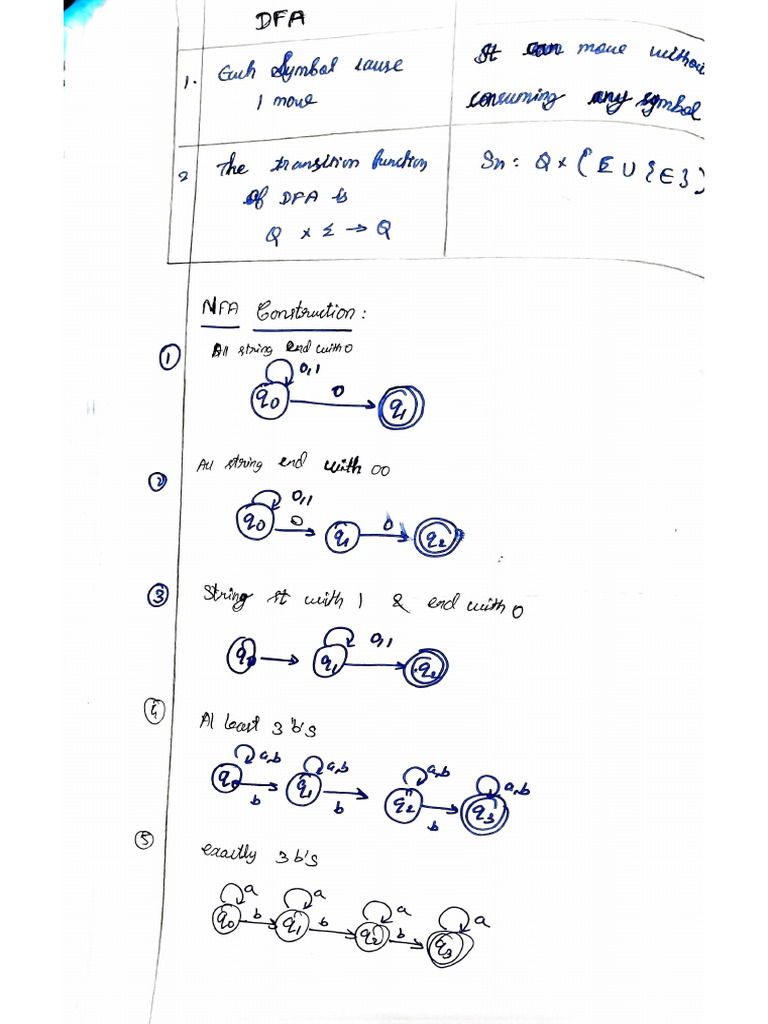 DFA
1. Each Symbol cause
1 move
It can move withou
consuming any symbol
2 The transition function
of DFA is
Q × Σ → Q
Sn: Q × (Σ ∪ {∈})
NFA Construction:
① All string end with 0
0,1
q0 0 q1
② All string end with 00
0,1
q0 0 q1 0 q2
③ String st with 1 & end with 0
0,1
q1
④ At least 3 b's
a,b a,b a,b a,b
q1 q2 q3
b b b
⑤ exactly 3 b's
a a a a
q0 b q1 b q2 b q3